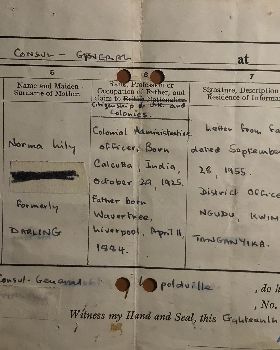 CONSUL - GENERAL at
5 6 7
Name and Maiden Surname of Mother.
Rank, Profession or Occupation of Father, and claim to British Nationality
Citizenship of U.K. and Colonies.
Signature, Description
Residence of Informa
Norma Lily
formerly
DARLING
Colonial Administrative
Officer, Born
Calcutta India,
October 29, 1925.
Father born
Wavertree,
Liverpool, April 11,
1884.
Letter from Fa
dated September
28, 1955.
District Office
NGUDU, KWIM
TANGANYIKA.
Consul-General
poldville
, do h
, No.
Witness my Hand and Seal, this Eighteenth